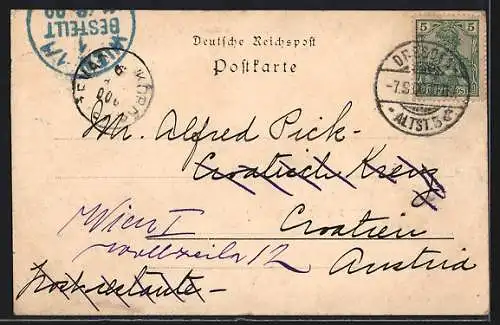 WIEN 1/1
BESTELLT
Deutsche Reichspost
Postkarte
5
DRESDEN
-7.9.
* ALTST. 3 *
Mr. Alfred Pick-
Croatisch Kreuz
Wien I
Croatien
Wollzeile 12
Austria
Postrestante-